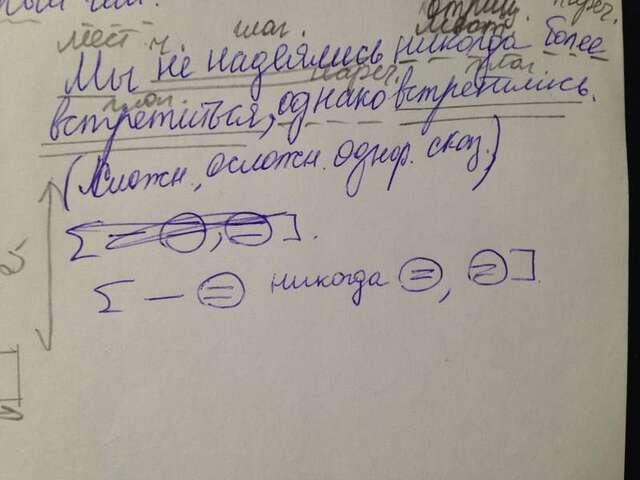 отриц. нареч.
мест. ч. глаг. мест.
Мы не надеялись никогда более
глаг. нареч. глаг.
встретиться, однако встретились.
(Сложн., осложн. однор. сказ.)
[— =, =].
[— = никогда =, =].